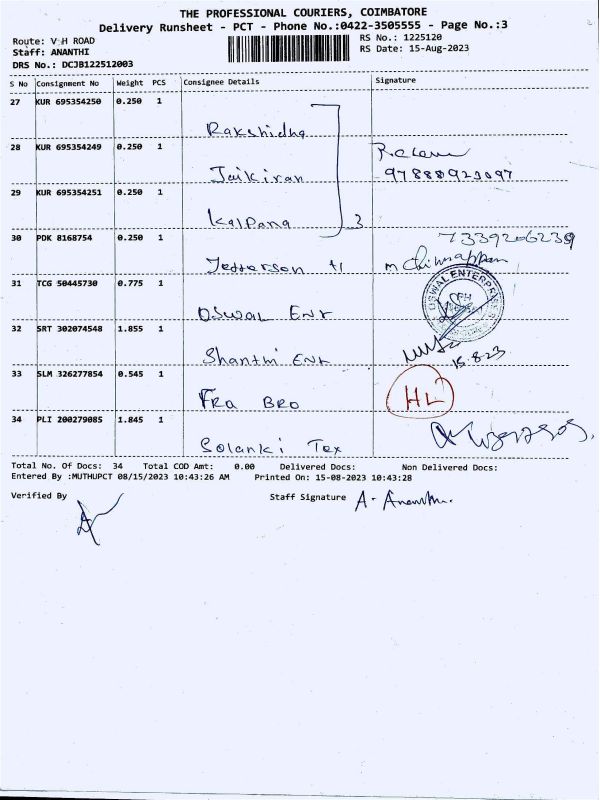 THE PROFESSIONAL COURIERS, COIMBATORE
Delivery Runsheet - PCT - Phone No.:0422-3505555 - Page No.:3
Route: V H ROAD
RS No.: 1225120
Staff: ANANTHI
RS Date: 15-Aug-2023
DRS No.: DCJB122512003
S No Consignment No Weight PCS Consignee Details Signature
27 KUR 695354250 0.250 1
Rakshidha
28 KUR 695354249 0.250 1
Jaikiran
29 KUR 695354251 0.250 1
Kalpana 3
30 PDK 8168754 0.250 1
7339206239
Jefferson
31 TCG 50445730 0.775 1
OSWAL ENTERPRISES
Oswal Ent
32 SRT 302074548 1.855 1
Shanthi Ent
15.8.23
33 SLM 326277854 0.545 1
HL
Fra Bro
34 PLI 200279085 1.845 1
Solanki Tex
Total No. Of Docs: 34 Total COD Amt: 0.00 Delivered Docs: Non Delivered Docs:
Entered By :MUTHUPCT 08/15/2023 10:43:26 AM Printed On: 15-08-2023 10:43:28
Verified By
Staff Signature A. Ananthi.